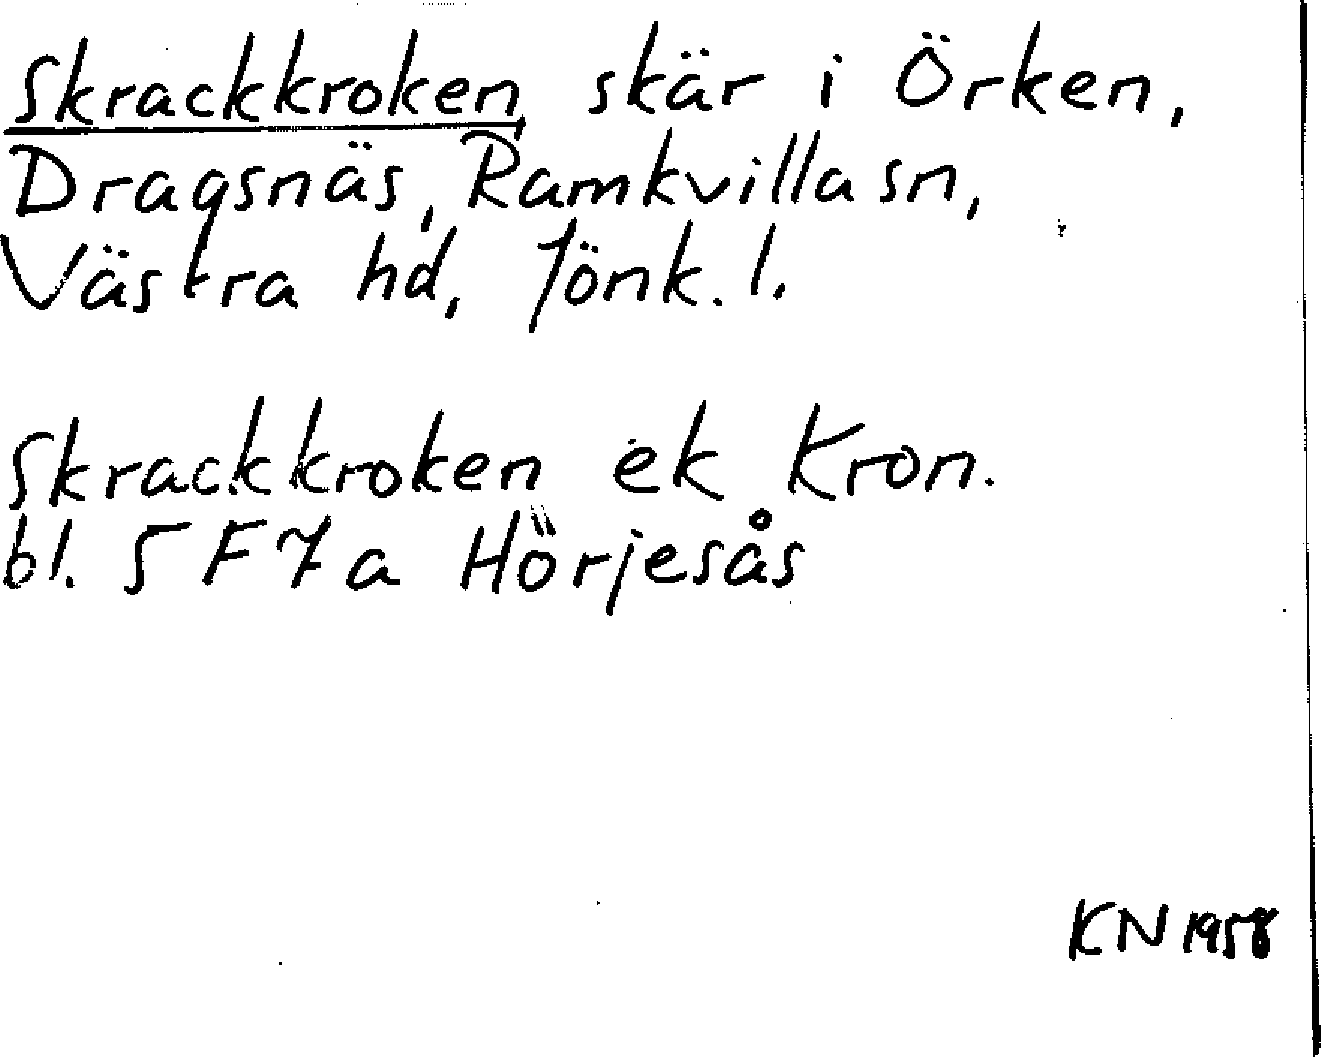 Skrackkroken, skär i Örken,
Dragsnäs, Ramkvilla sn,
Västra hd, Jönk. l.
Skrackkroken ek Kron.
bl. 5 F 7 a Hörjesås
KN 1958